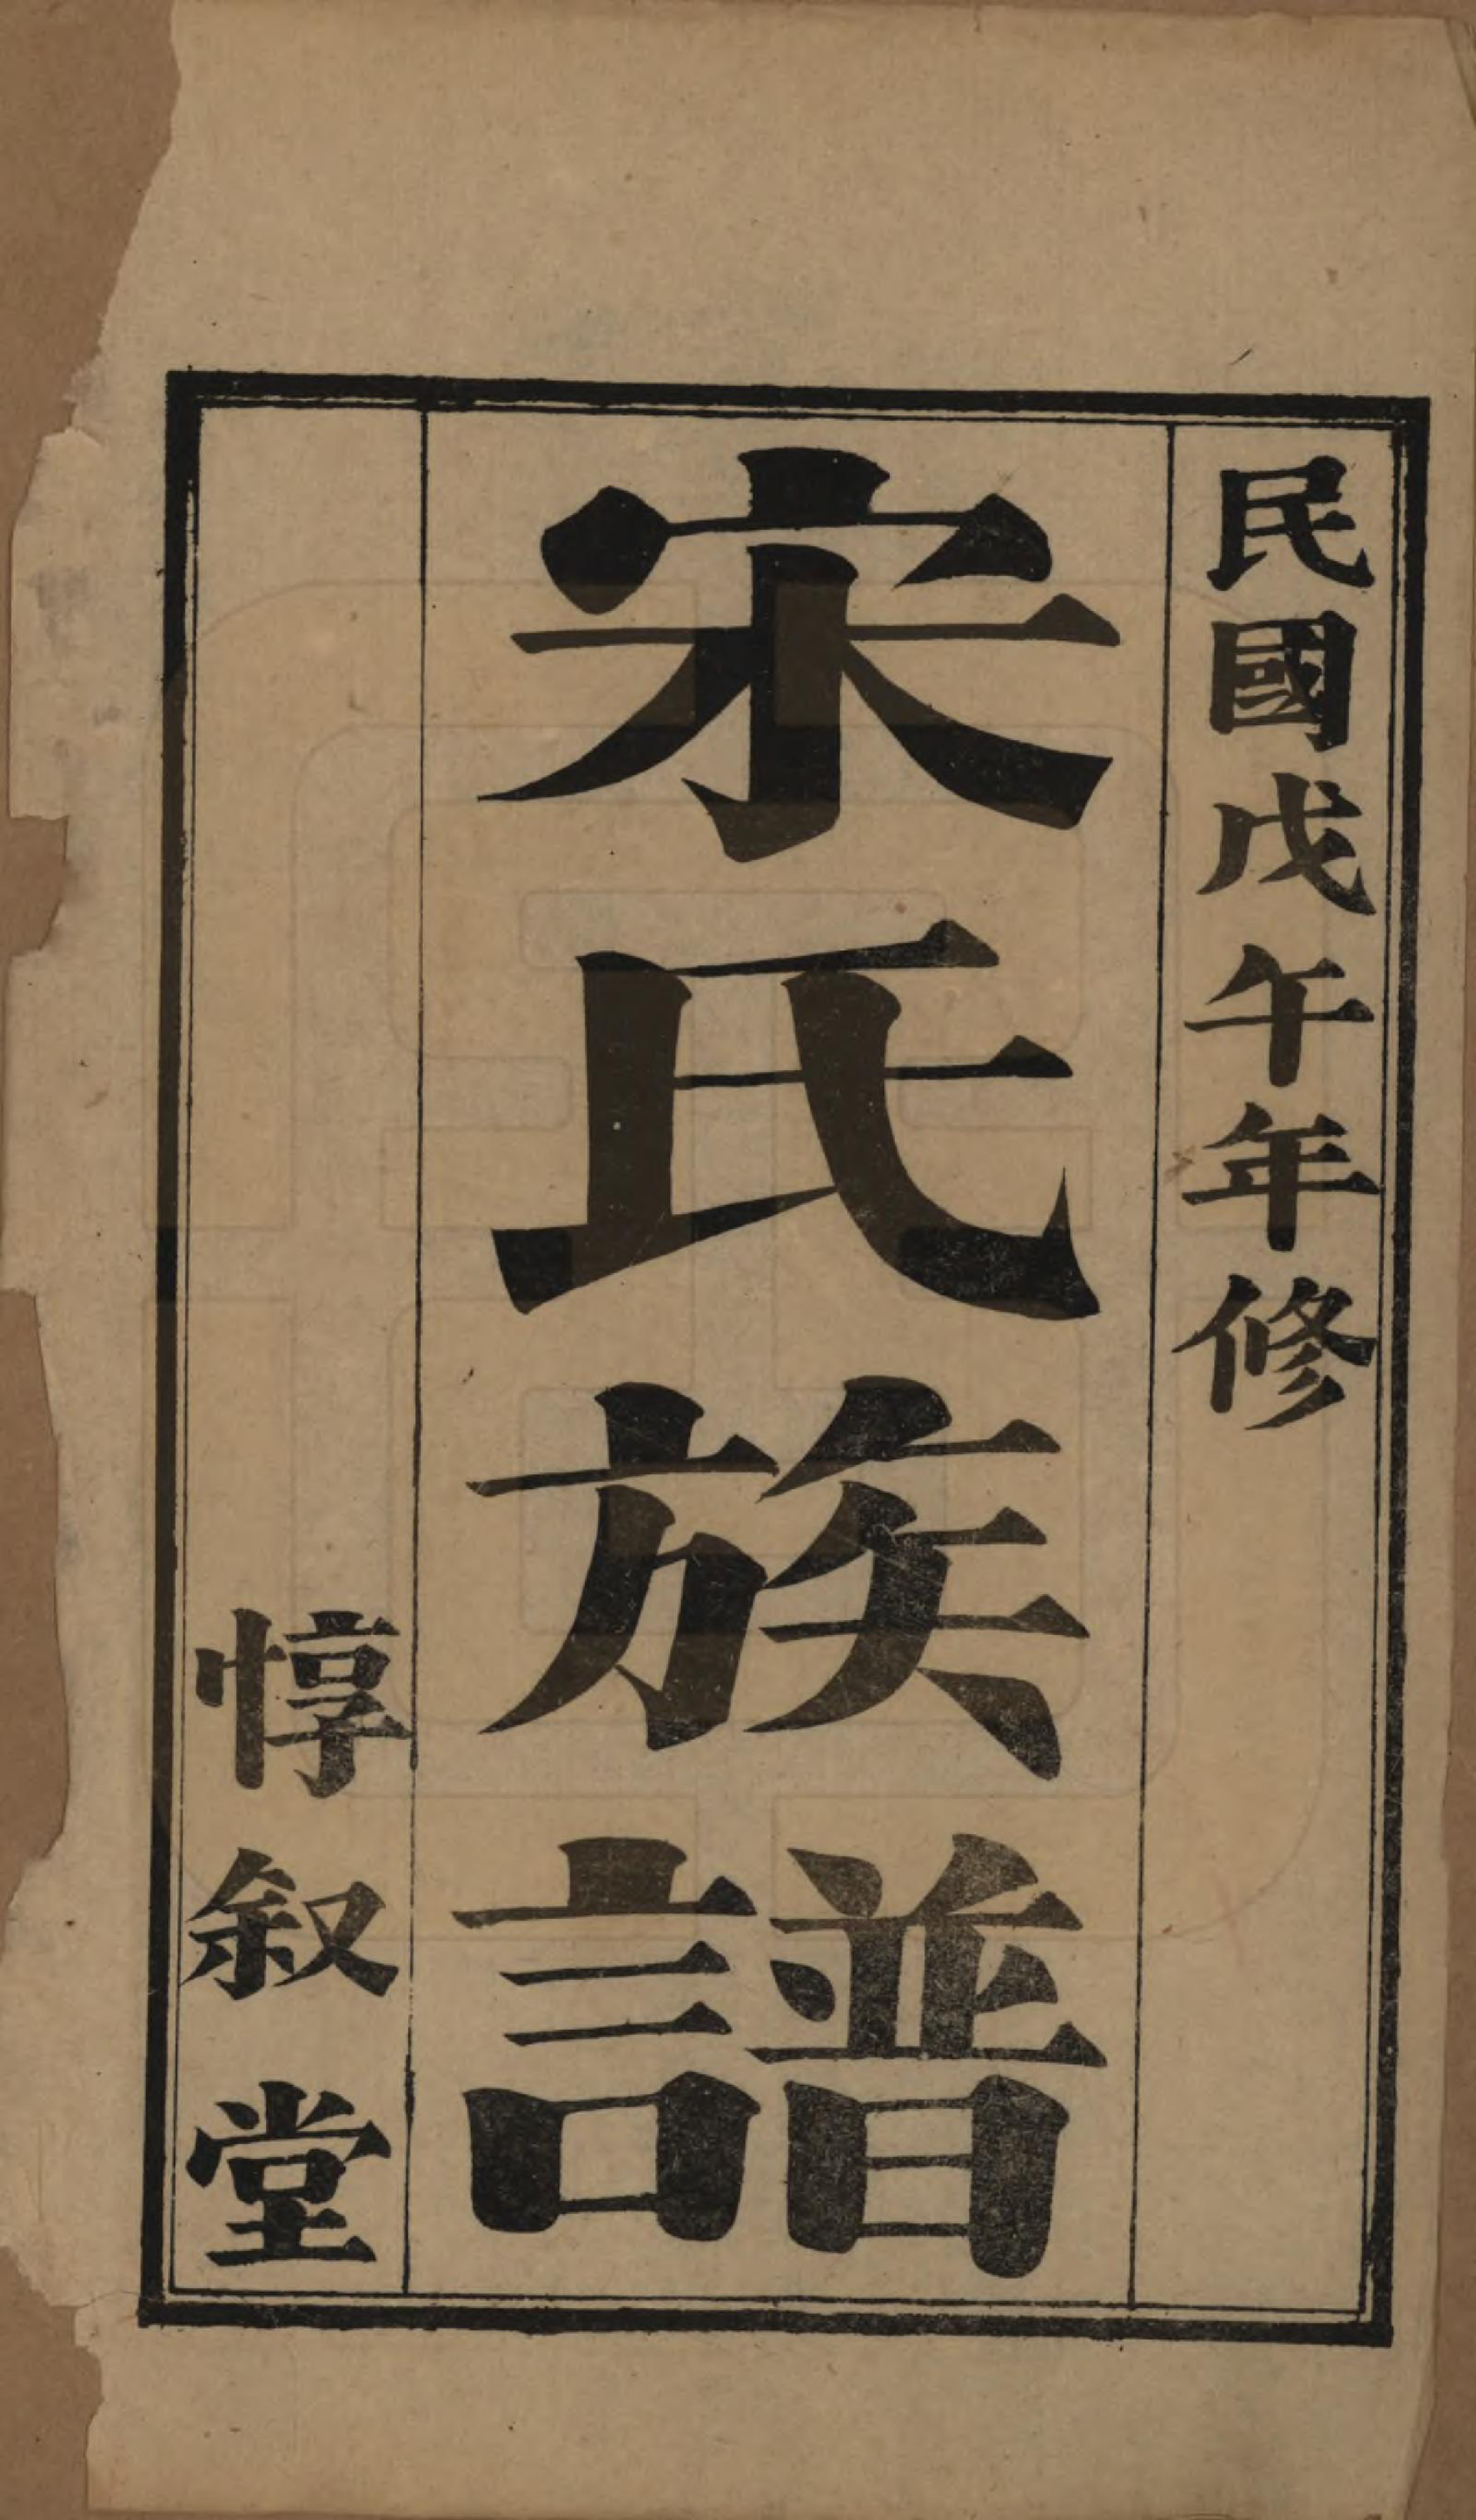 民國戊午年修
宋氏族譜
惇叙堂